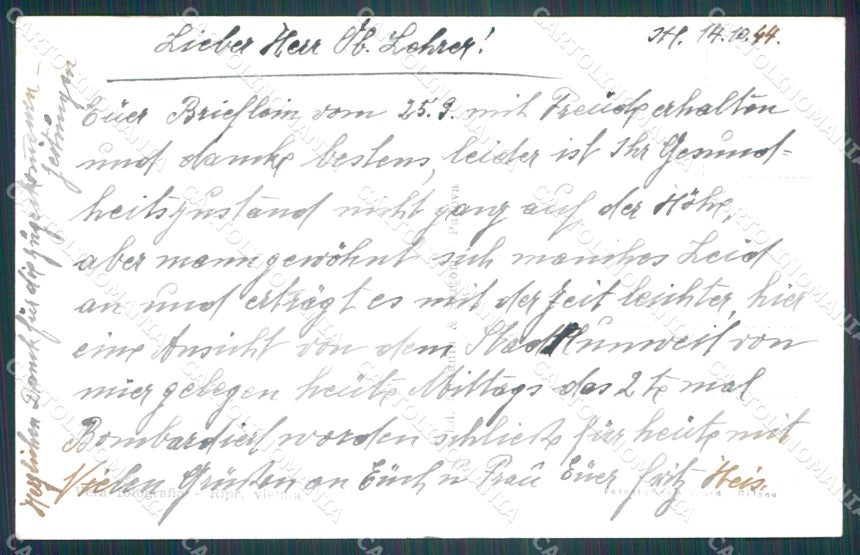 Jtl. 14.10.44.
Lieber Herr Ob. Lehrer!
Eüer Brieflein vom 25.9. mit Freüde erhalten
und danke bestens, leider ist Ihr Gesund-
heitszustand nicht ganz auf der Höhe,
aber mann gewöhnt sich manches Leid
an und erträgt es mit der Zeit leichter, hier
eine Ansicht von dem Stadtl unweit von
mier gelegen heüte Mittags das 2te mal
Bombardiert worden schließe für heüte mit
Vielen Grüßen an Eüch u Fraü Eüer Fritz Heis.
Herzlichen Dank für die zugekommenen
Zeitungen
Vera fotografia - Ripr. vietata
CARTOLINOMANIA